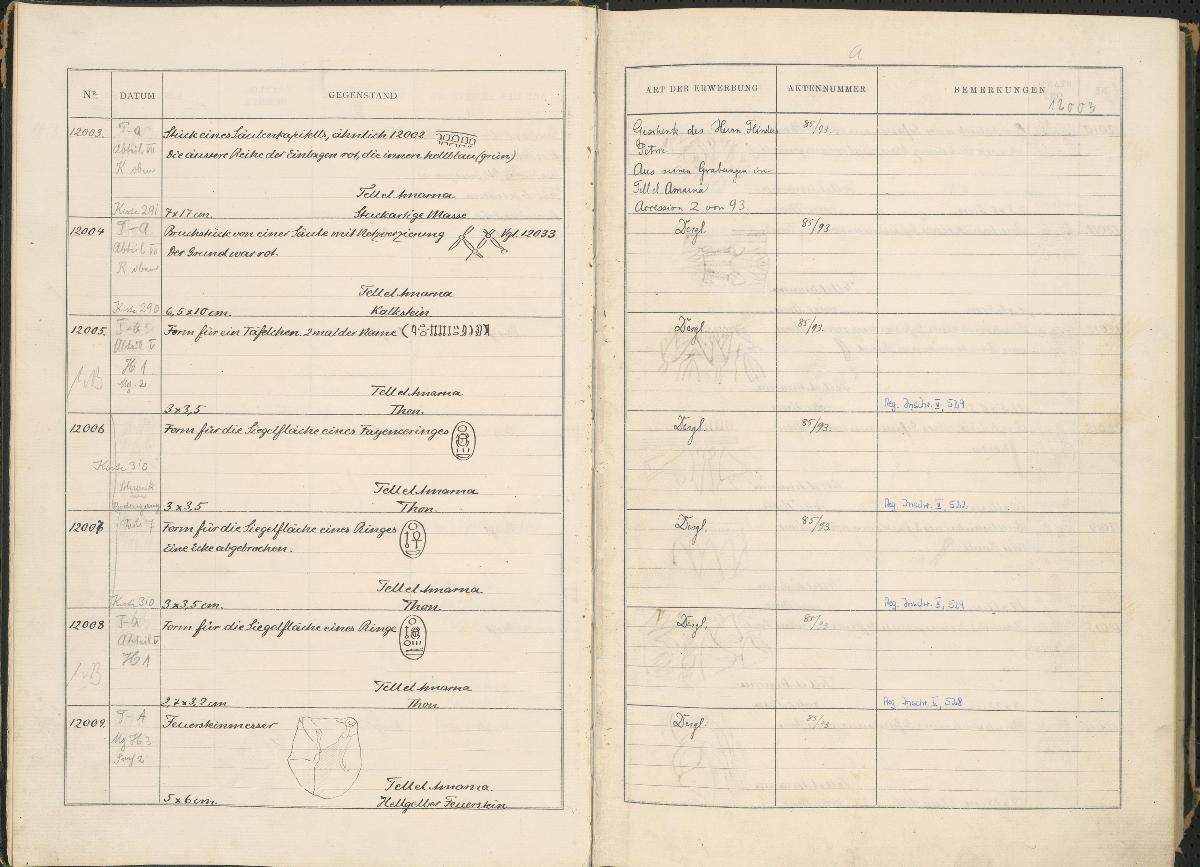 Nr. DATUM GEGENSTAND
12003. T-a Stück eines Säulenkapitells, ähnlich 12002
Abteil VII Die äussere Reihe der Einlagen rot, die innere hellblau (grün)
K oben
Tell el Amarna
Kiste 291 7x17 cm. Stuckartige Masse
12004 T-a Bruchstück von einer Säule mit Netzverzierung Vgl. 12033
Abteil VII Der Grund war rot.
K oben
Tell el Amarna
Kiste 290 6,5x10 cm. Kalkstein
12005. Form für ein Täfelchen. 2 mal der Name
Abteil V
H 1
Mg. 2
Tell el Amarna
3x3,5 Thon.
12006 Form für die Siegelfläche eines Fayenceringes
Kiste 310
Schrank
Tell el Amarna
3x3,5 Thon.
12007 Form für die Siegelfläche eines Ringes
Eine Ecke abgebrochen.
Tell el Amarna
Kiste 310 3x3,5 cm. Thon.
12008 T-a Form für die Siegelfläche eines Ringe
Abteil V
H 1
Tell el Amarna
2,7x3,2 cm Thon.
12009. T-A Feuersteinmesser
Mg H 3
Tell el Amarna.
5x6 cm. Hellgelber Feuerstein
a
ART DER ERWERBUNG AKTENNUMMER BEMERKUNGEN
12003
Geschenk des Herrn Flinders 85/93.
Petrie
Aus seinen Grabungen in
Tell el Amarna
Accession 2 von 93.
Dergl. 85/93.
Dergl. 85/93.
Aeg. Inschr. II, 529
Dergl. 85/93.
Aeg. Inschr. II, 522
Dergl. 85/93.
Aeg. Inschr. II, 529
Dergl. 85/93
Aeg. Inschr. II, 528
Dergl. 85/93